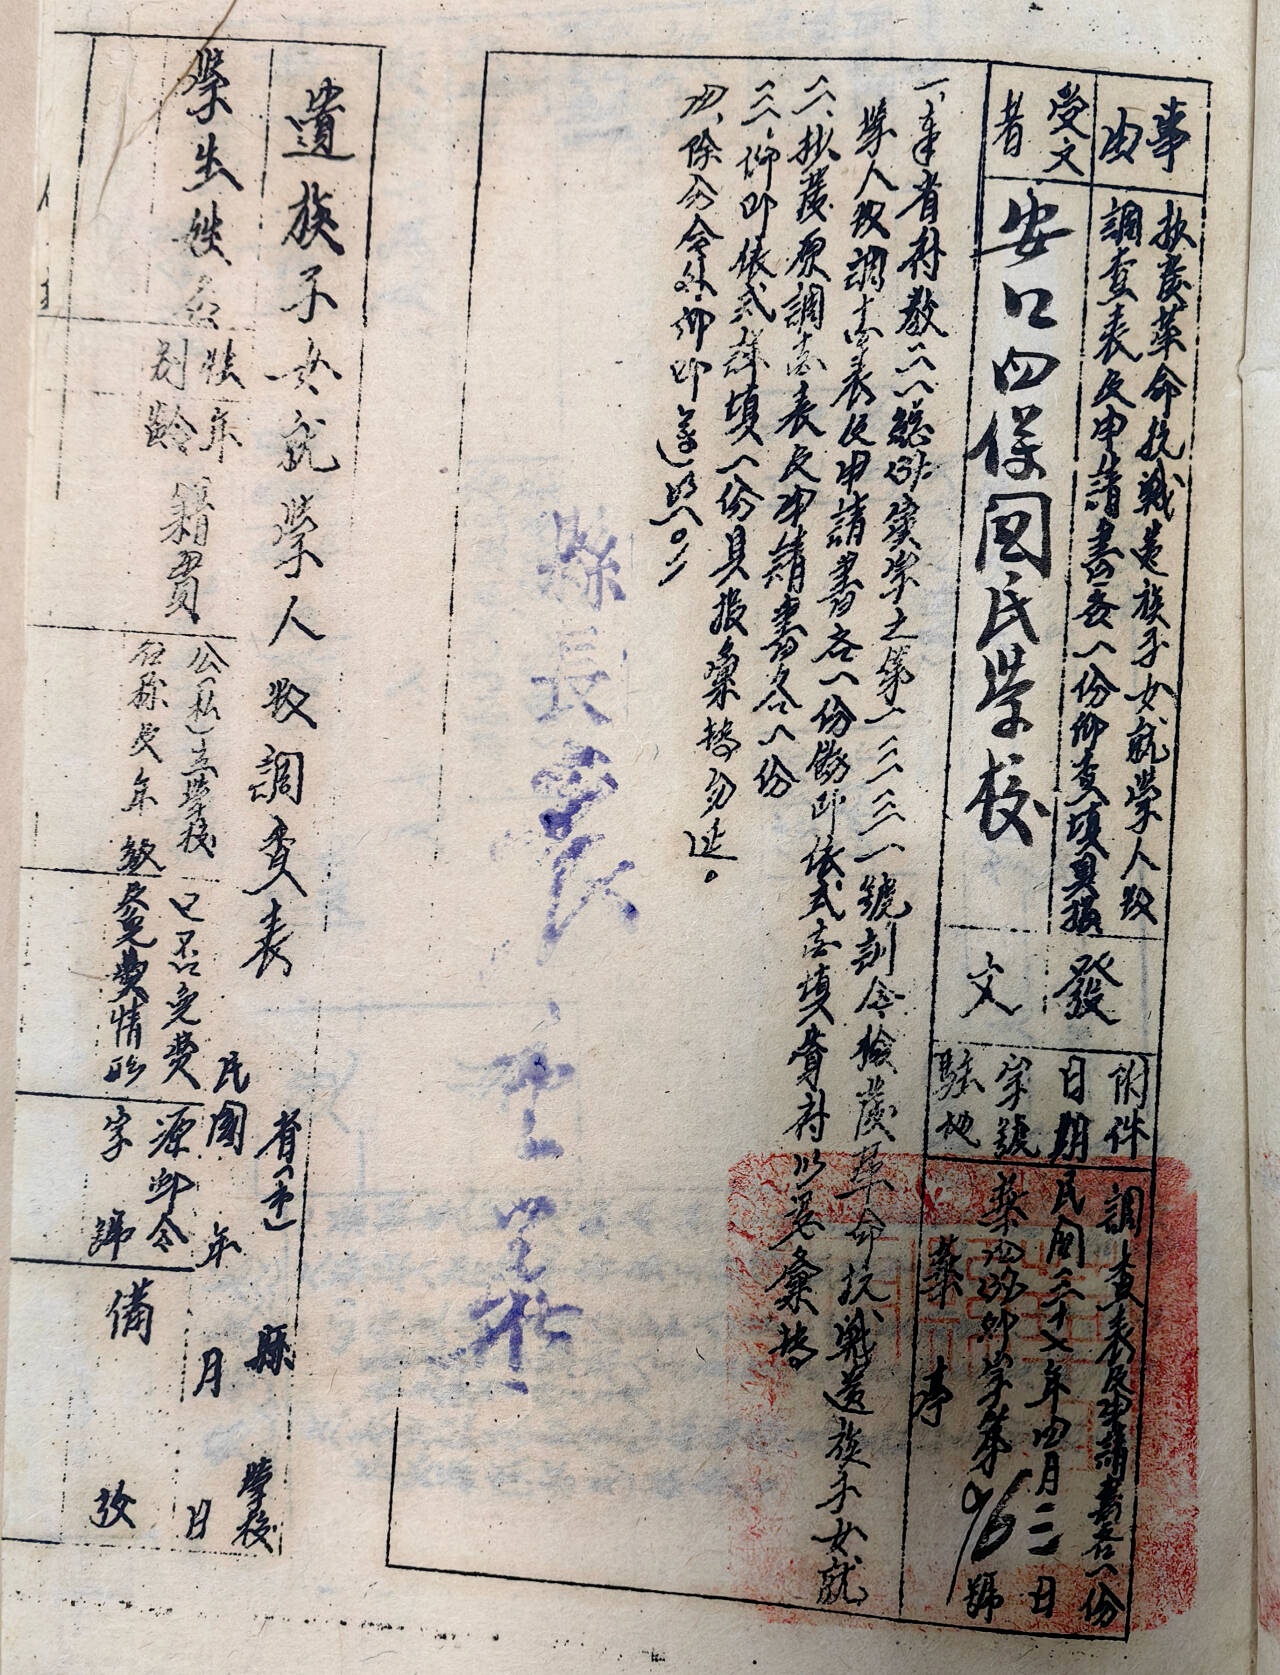 事由
抄發革命抗戰遺族子女就學人数
調查表及申請書各一份仰查填具報
受文者
安口四保國民學校
發文
附件
調查表及申請書各一份
日期
民國三十七年四月二日
字號
字第96號
駐地
華亭
一、奉省府教二八
字第一三三三一號訓令檢發革命抗戰遺族子女就
學人数調查表及申請書各一份飭即依式查填賫府以憑彙轉
二、抄發原調查表及申請書各一份
三、仰即依式詳填一份具報彙轉勿延。
四、除分令外仰即遵照。
縣長
遺族子女就學人数調查表
省(市) 縣 學校
民國 年 月 日
學生姓名
性別
年齡
籍貫
公(私)立學校
名称及年級
已否免費
及免費情形
源卹令
字 號
備攷